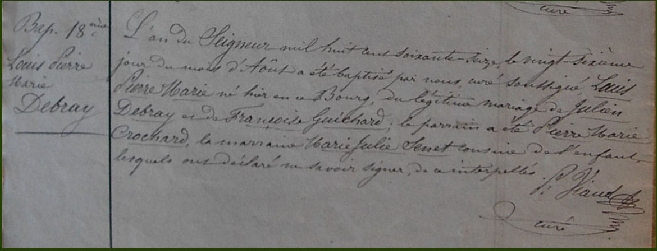 curé
Bap. 18ème
Louis Pierre
Marie
Debray
L'an du Seigneur mil huit cent soixante-onze, le vingt sixième
jour du mois d'Août a été baptisé par nous, curé soussigné Louis
Pierre Marie né hier en ce Bourg, du légitime mariage de Julien
Debray et de Françoise Guichard; le parrain a été Pierre Marie
Crochard, la marraine Marie Julie Senet cousine de l'enfant
lesquels ont déclaré ne savoir signer, de ce interpellés
curé